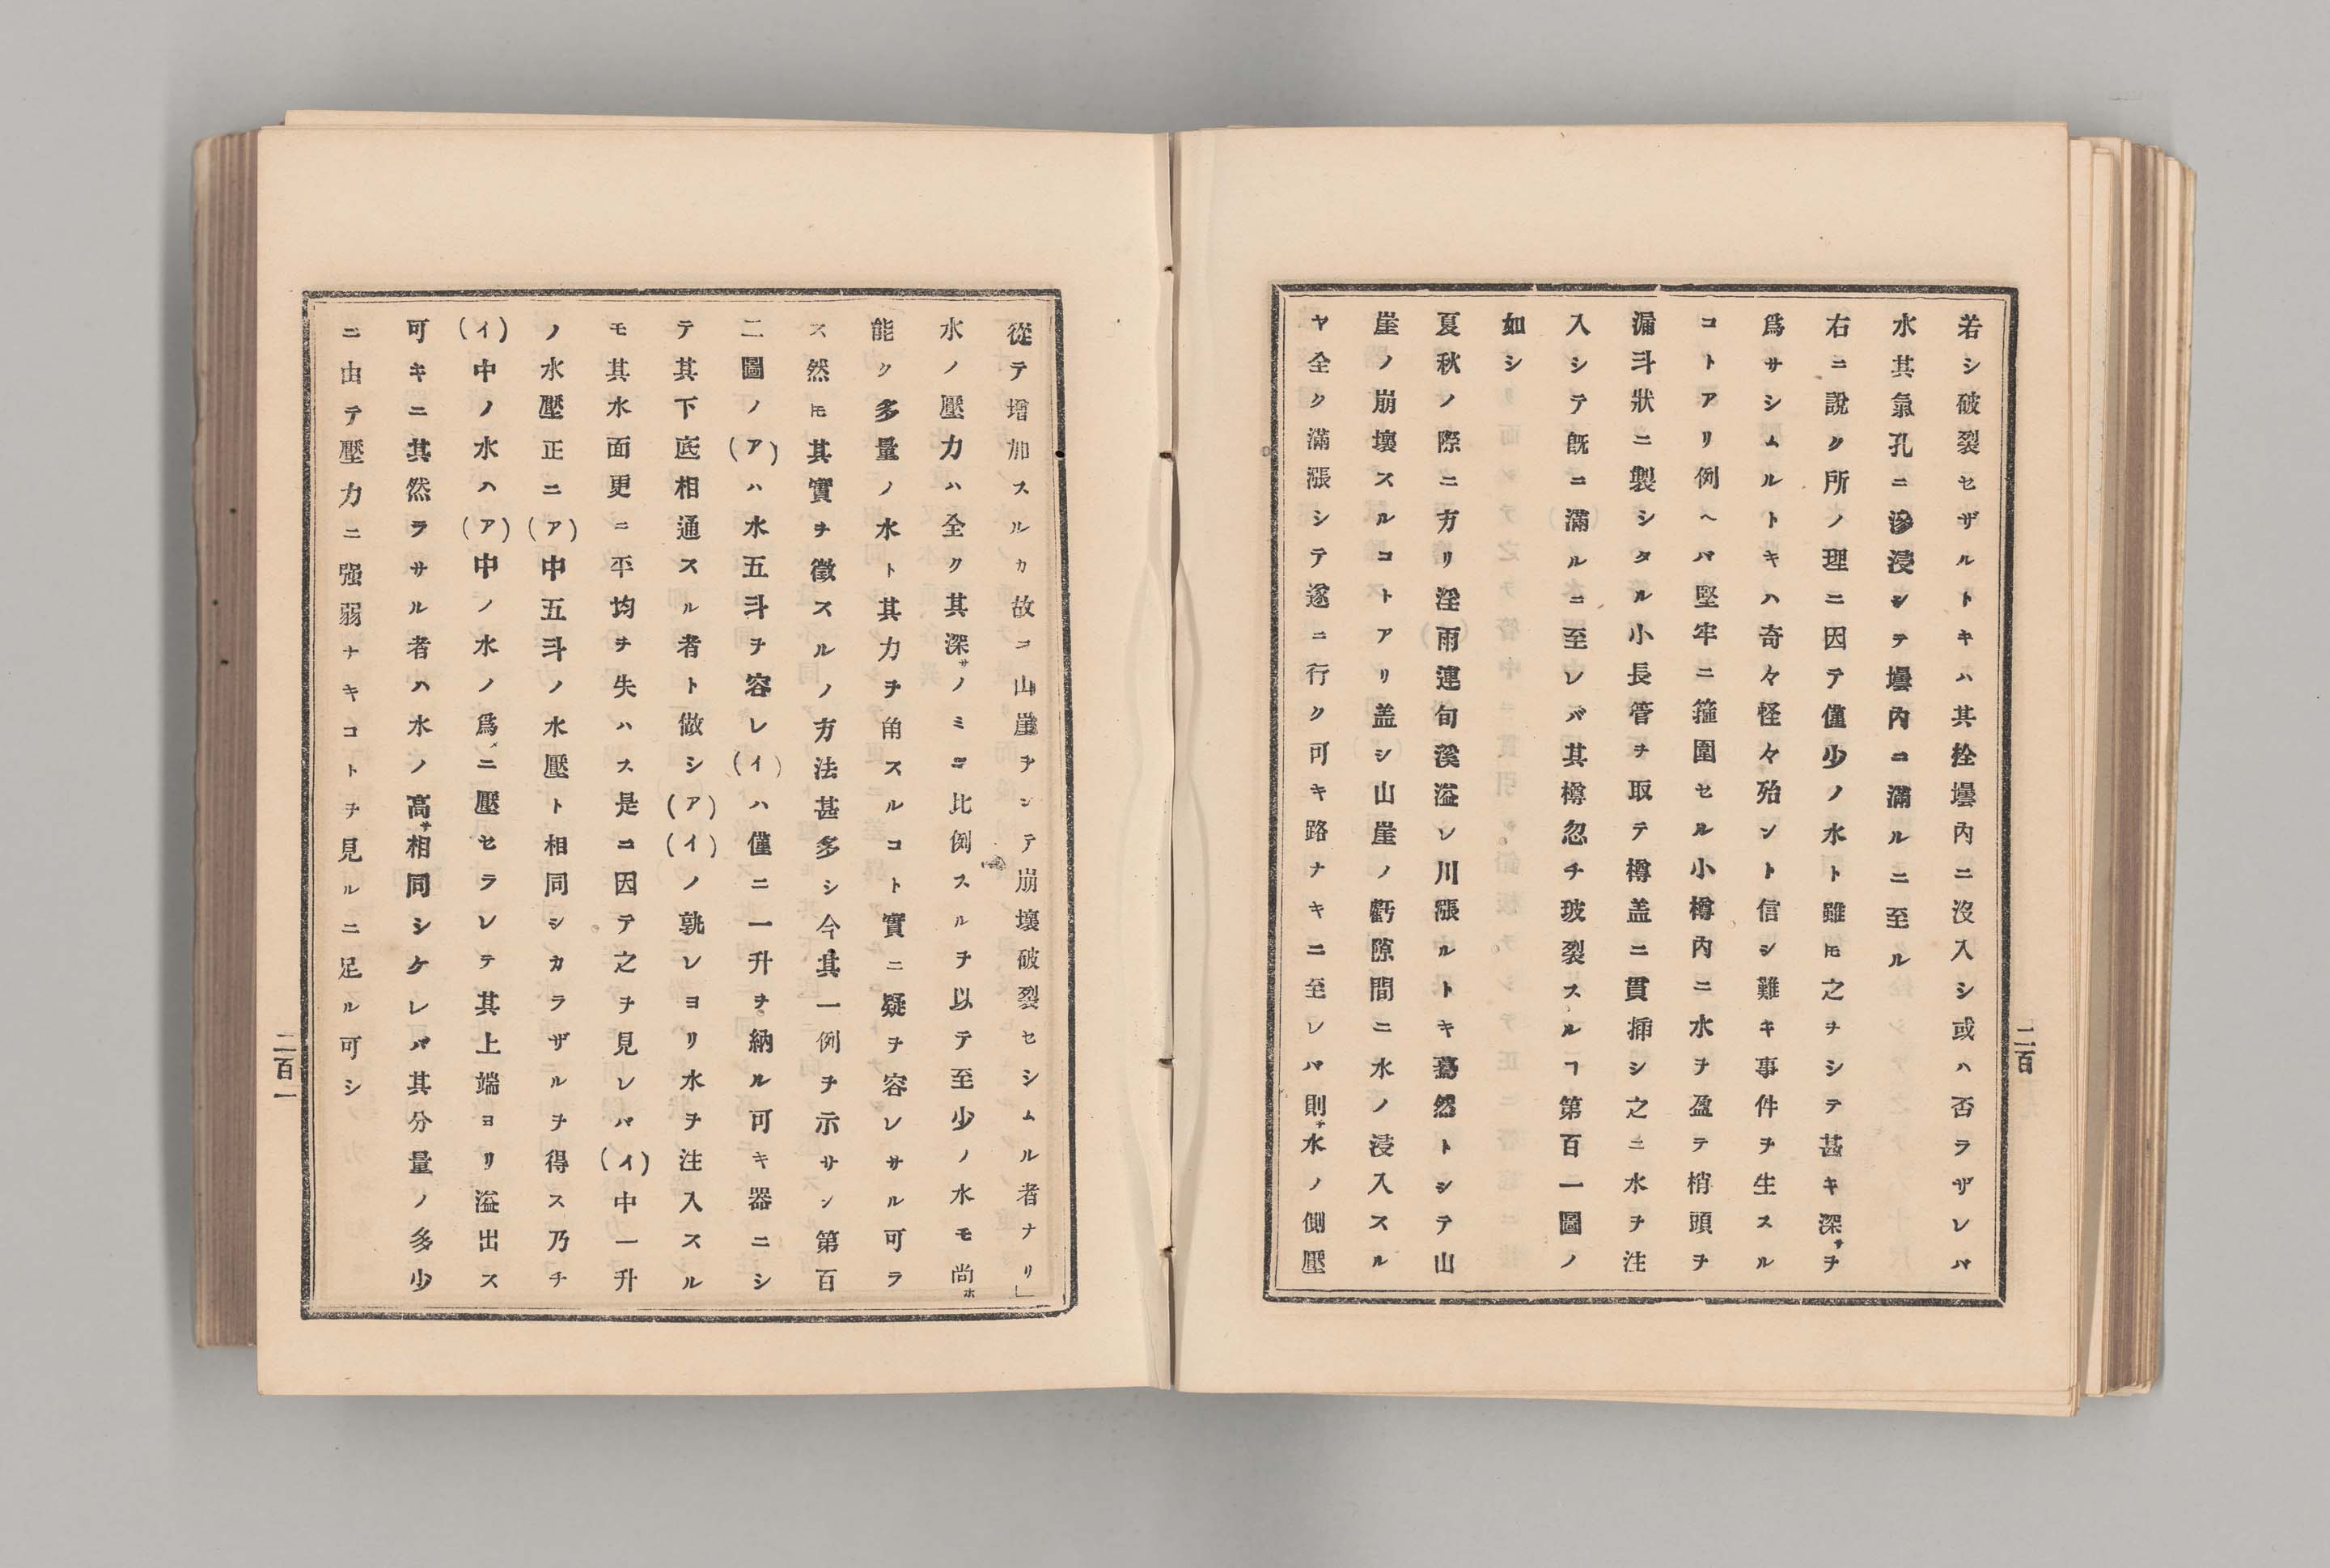 若シ破裂セザルトキハ其栓壜內ニ沒入シ或ハ否ラザレバ
水其氣孔ニ滲浸シテ壜內ニ滿ルニ至ル
右ニ說ク所ノ理ニ因テ僅少ノ水ト雖𪜈之ヲシテ甚キ深サヲ
爲サシムルトキハ奇々怪々殆ント信シ難キ事件ヲ生スル
コトアリ例ヘバ堅牢ニ箍圍セル小樽內ニ水ヲ盈テ梢頭ヲ
漏斗狀ニ製シタル小長管ヲ取テ樽盖ニ貫揷シ之ニ水ヲ注
入シテ旣ニ滿ルニ至レバ其樽忽チ破裂スルヿ第百一圖ノ
如シ
夏秋ノ際ニ方リ淫雨連旬溪溢レ川漲ルトキ驀然トシテ山
崖ノ崩壞スルコトアリ盖シ山崖ノ虧隙間ニ水ノ浸入スル
ヤ全ク滿漲シテ遂ニ行ク可キ路ナキニ至レバ則チ水ノ側壓
二百
從テ增加スルカ故ニ山崖ヲシテ崩壞破裂セシムル者ナリ」
水ノ壓力ハ全ク其深サノミニ比例スルヲ以テ至少ノ水モ尙ホ
能ク多量ノ水ト其力ヲ角スルコト實ニ疑ヲ容レサル可ラ
ス然𪜈其實ヲ徵スルノ方法甚多シ今其一例ヲ示サン第百
二圖ノ(ア)ハ水五斗ヲ容レ(イ)ハ僅ニ一升ヲ納ル可キ器ニシ
テ其下底相通スル者ト做シ(ア)(イ)ノ孰レヨリ水ヲ注入スル
モ其水面更ニ平均ヲ失ハス是ニ因テ之ヲ見レバ(イ)中一升
ノ水壓正ニ(ア)中五斗ノ水壓ト相同シカラザルヲ得ス乃チ
(イ)中ノ水ハ(ア)中ノ水ノ爲メニ壓セラレテ其上端ヨリ溢出ス
可キニ其然ラサル者ハ水ノ高サ相同シケレバ其分量ノ多少
ニ由テ壓力ニ强弱ナキコトヲ見ルニ足ル可シ
二百一